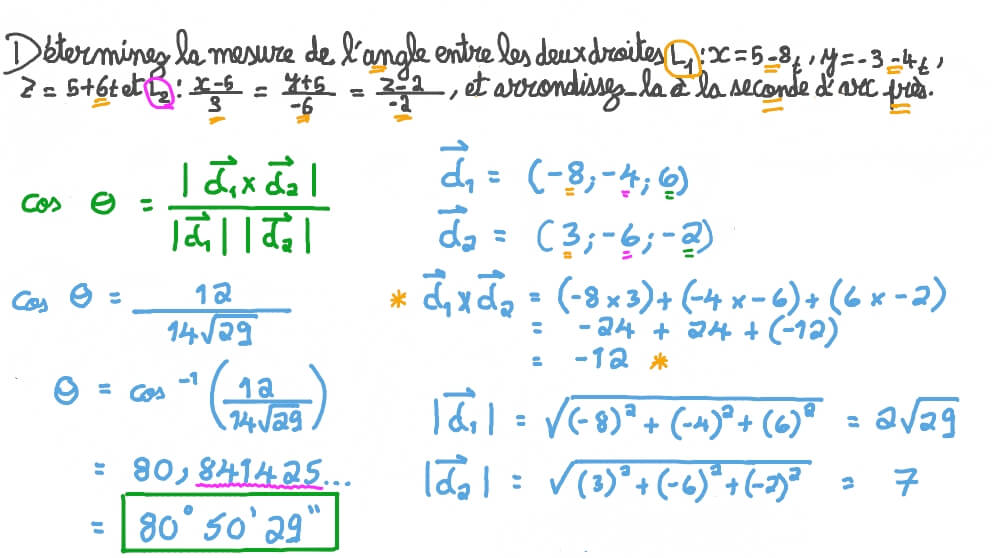 Déterminez la mesure de l'angle entre les deux droites L₁ : x = 5 - 8t, y = -3 - 4t,
z = 5 + 6t et L₂ : (x-5)/3 = (y+5)/-6 = (z-2)/-2, et arrondissez-la à la seconde d'arc près.
cos θ = |d⃗₁ × d⃗₂| / |d⃗₁| |d⃗₂|
d⃗₁ = (-8; -4; 6)
d⃗₂ = (3; -6; -2)
cos θ = 12 / 14√29
* d⃗₁ × d⃗₂ = (-8 × 3) + (-4 × -6) + (6 × -2)
= -24 + 24 + (-12)
= -12 *
θ = cos⁻¹ (12 / 14√29)
= 80,841425...
= 80° 50' 29"
|d⃗₁| = √(-8)² + (-4)² + (6)² = 2√29
|d⃗₂| = √(3)² + (-6)² + (-2)² = 7